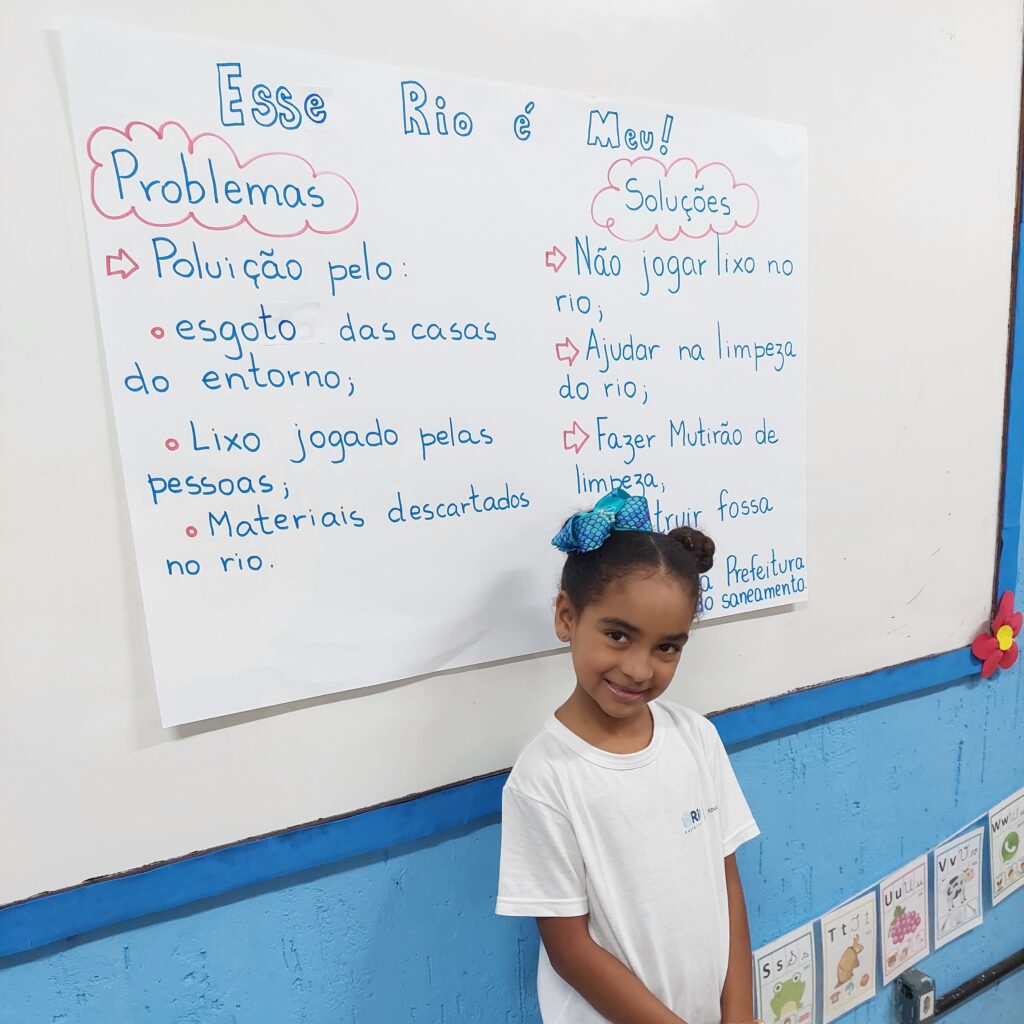 Esse Rio é Meu!
Problemas
Poluição pelo:
esgoto das casas
do entorno;
Lixo jogado pelas
pessoas;
Materiais descartados
no rio.
Soluções
Não jogar lixo no
rio;
Ajudar na limpeza
do rio;
Fazer Mutirão de
limpeza;
truir fossa
a Prefeitura
do saneamento.
S s
T t
U u
V v
W w